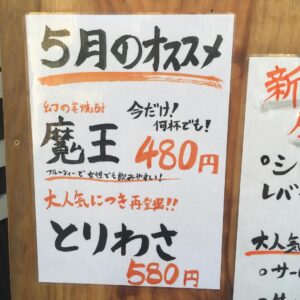 5月のオススメ
幻の芋焼酎
今だけ!
何杯でも!
魔王 480円
フルーティーで女性でも飲みやすい!
大人気につき再登場!!
とりわさ
580円
新
○シ
レバ
大人気
○サー